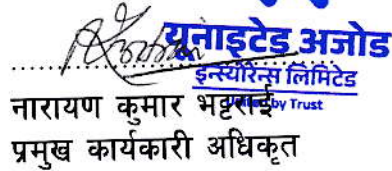 युनाइटेड अजोड
इन्स्योरेन्स लिमिटेड
by Trust
नारायण कुमार भट्टराई
प्रमुख कार्यकारी अधिकृत